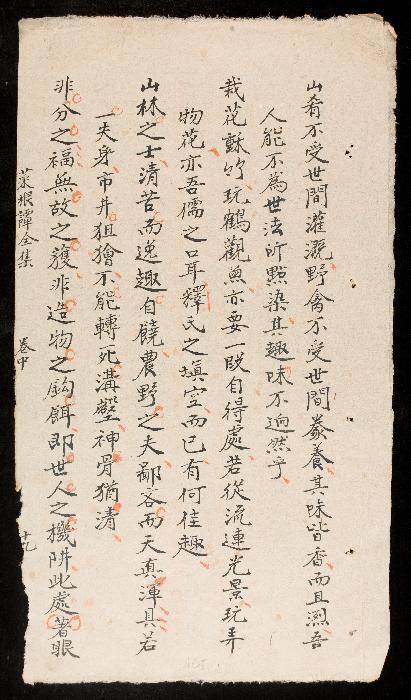 山肴不受世間灌溉野禽不受世間豢養其味皆香而且冽吾
人能不為世法所點染其趣味不逈然乎
栽花種竹玩鶴觀魚亦要一段自得處若從流連光景玩弄
物花亦吾儒之口耳釋氏之頑空而已有何佳趣
山林之士清苦而逸趣自饒農野之夫鄙吝而天真渾具若
一失身市井狙獪不能轉死溝壑神骨猶清
非分之福無故之獲非造物之鈎餌即世人之機阱此處著眼
菜根譚全集
卷中
十九